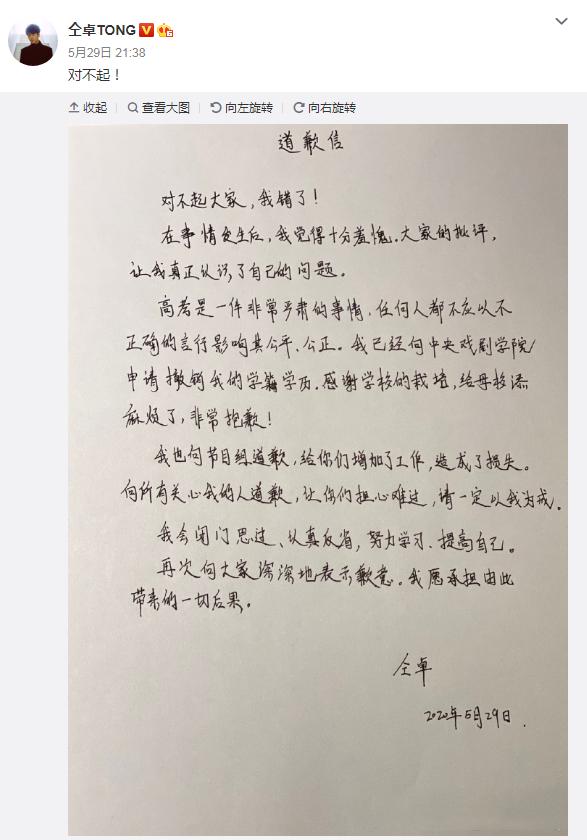 仝卓TONG
5月29日 21:38
对不起！
收起 查看大图 向左旋转 向右旋转
道歉信
对不起大家，我错了！
在事情发生后，我觉得十分羞愧。大家的批评，
让我真正认识了自己的问题。
高考是一件非常严肃的事情，任何人都不应以不
正确的言行影响其公平、公正。我已经向中央戏剧学院
申请撤销我的学籍学历。感谢学校的栽培，给母校添
麻烦了，非常抱歉！
我也向节目组道歉，给你们增加了工作，造成了损失。
向所有关心我的人道歉，让你们担心难过，请一定以我为戒。
我会闭门思过、认真反省，努力学习、提高自己。
再次向大家深深地表示歉意。我愿承担由此
带来的一切后果。
仝卓
2020年5月29日.